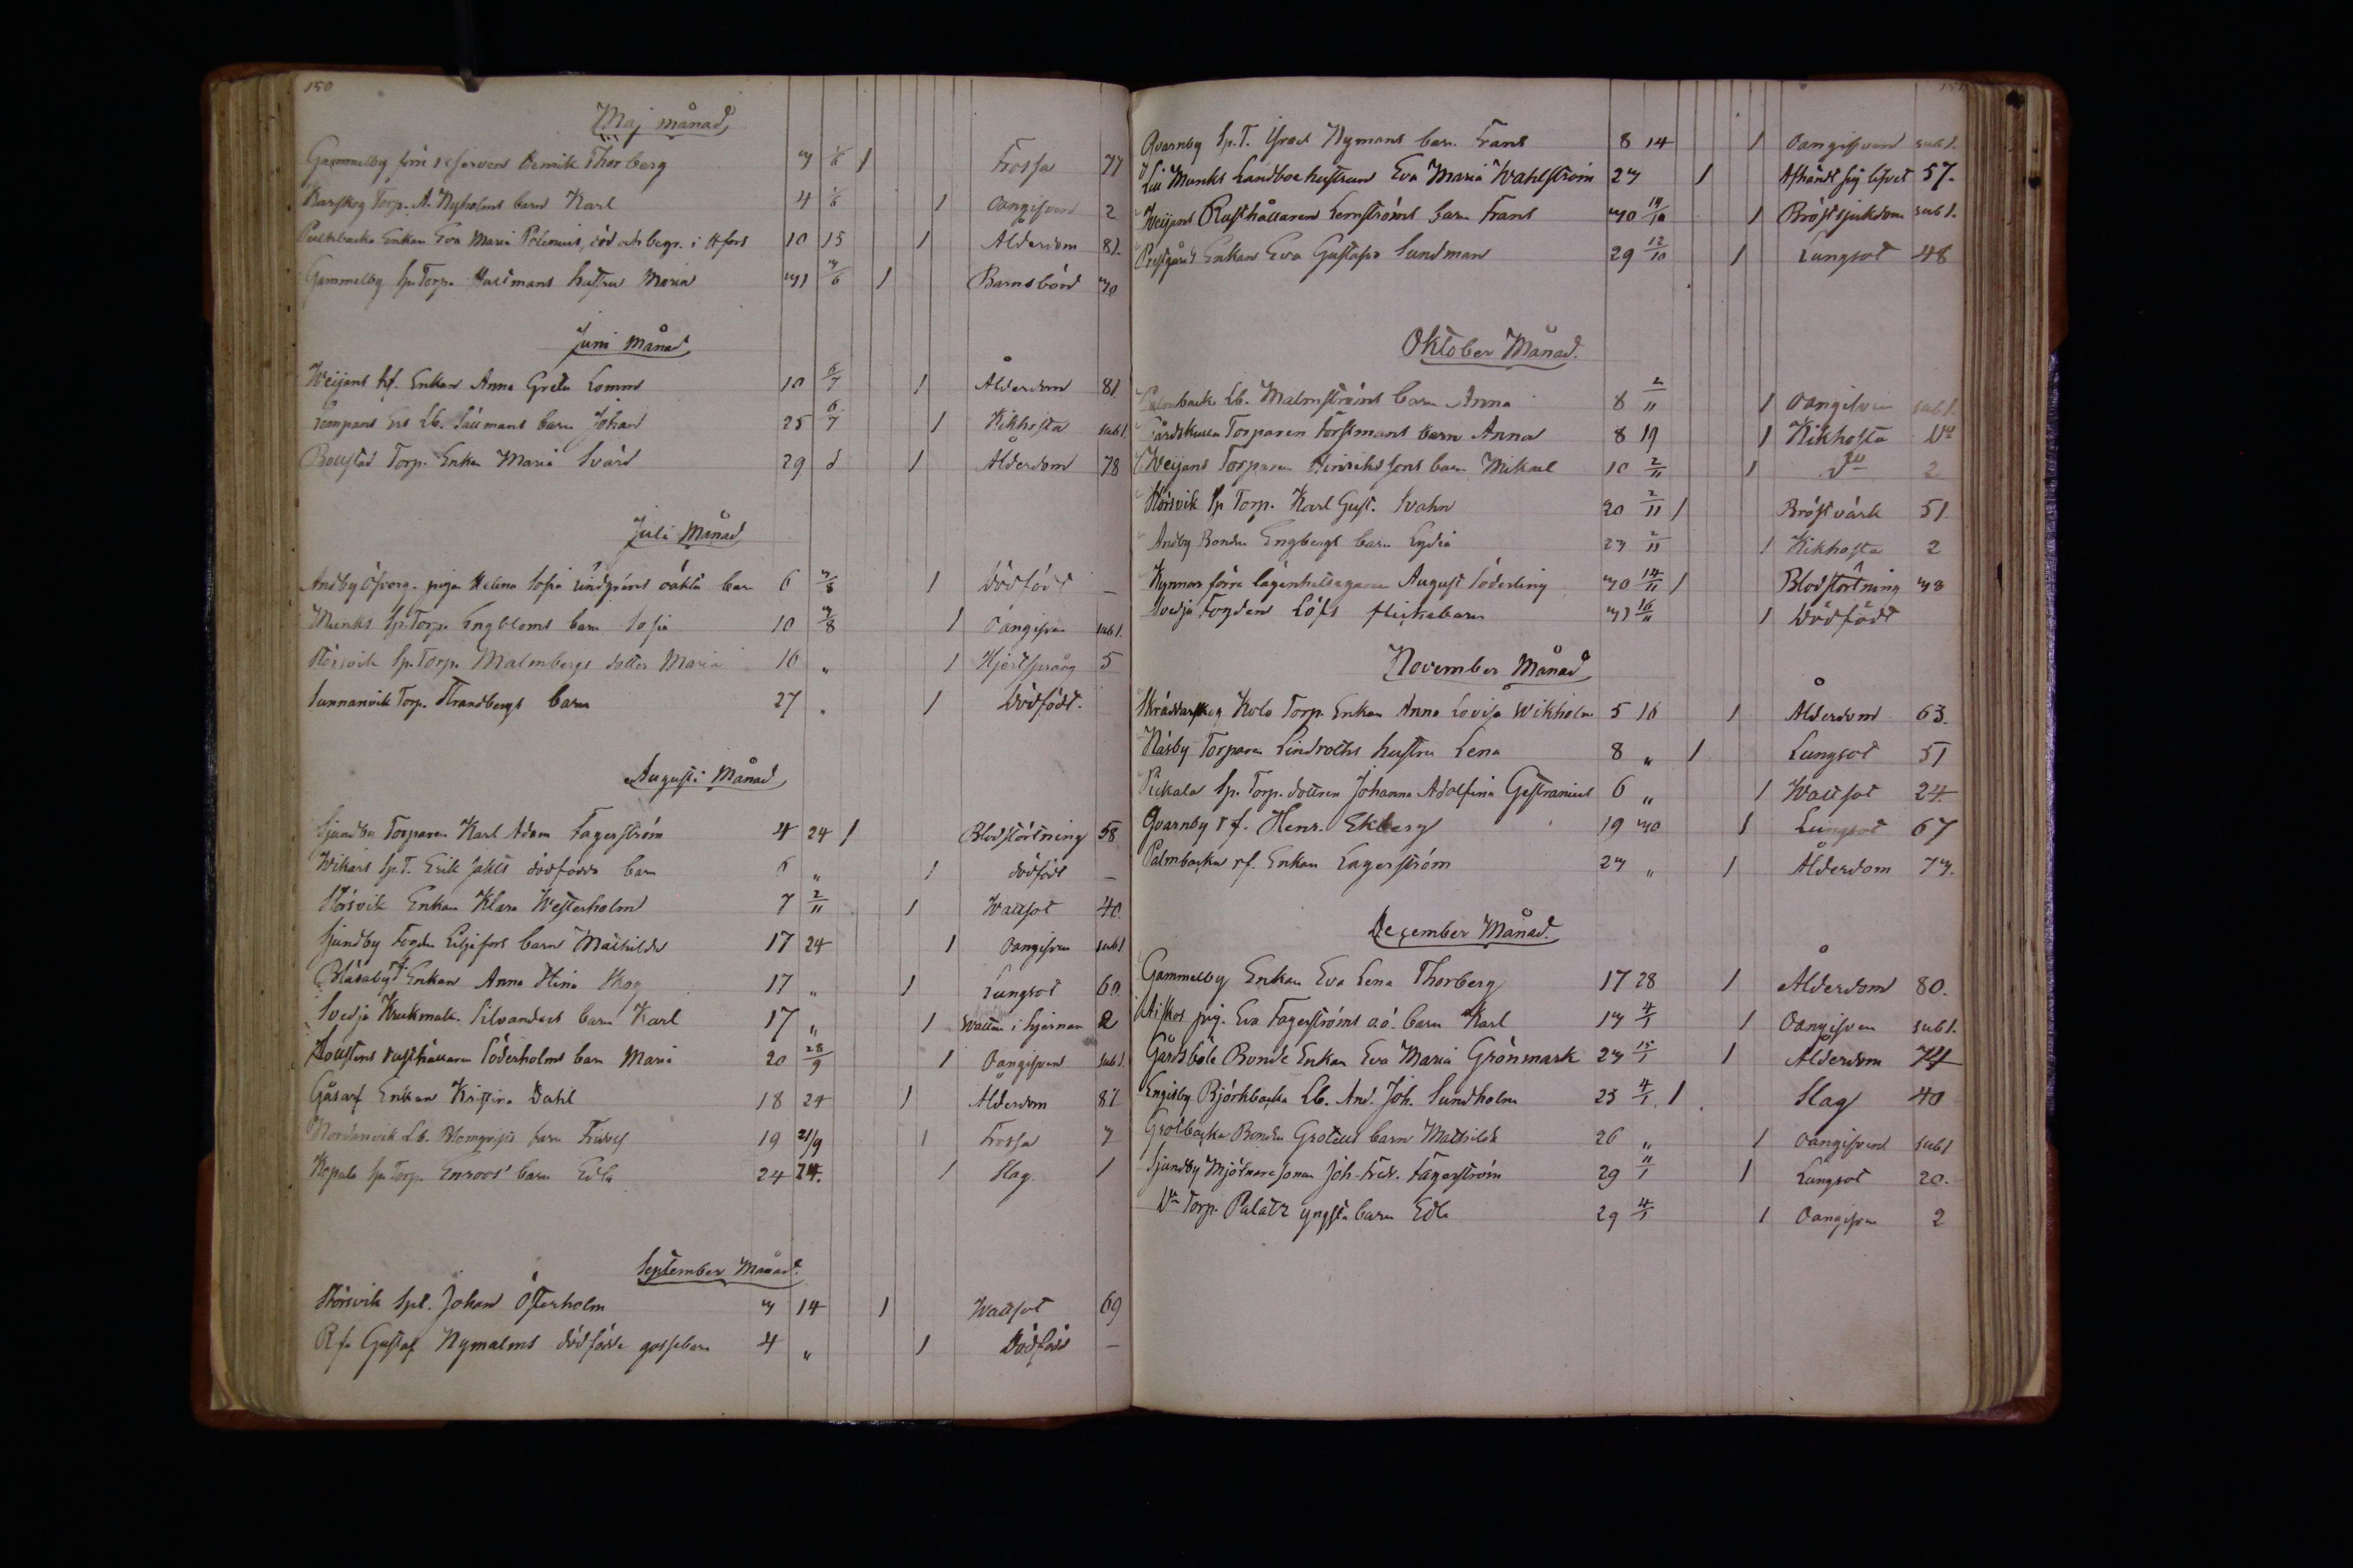 150
Maj månad
Gammelby förre reserven Henrik Thorberg 3 1/6 1 Frossa 77
Karskog Torp. A. Nyholms barn Karl 4 1/6 1 Oangifven 2
Enkan Eva Maria Polenius, död och begr. i Hfors 10 15 1 Ålderdom 81.
Gammelby Sp. Torp. Hultmans hustru Maria 31 3/6 1 Barnsbörd 30
Juni Månad
Weijans hf. Enkan Anna Greta Lomm 10 5/7 1 Ålderdom 81
Lb. Sällmans barn Johan 25 6/7 1 Kikhosta sub 1.
Bollstad Torp. Enka Maria Svärd 29 d 1 Ålderdom 78
Juli Månad
Andby piga Helena Sofia Lindgréns oäkta barn 6 3/8 1 Dödfödt —
Munks Sp. Torp. Engbloms barn Sofia 10 3/8 1 Oangifven sub 1.
Störsvik Sp. Torp. Malmbergs dotter Maria 16 „ 1 Hjertsprång 5
Sunnanvik Torp. Strandbergs barn 27 „ 1 Dödfödt.
Augusti Månad
Sjundby Torparen Karl Adam Fagerström 4 24 1 Blodstörtning 58
Wikars Sp. T. Erik Jakls dödfödda barn 6 „ 1 dödfödt —
Störsvik Enkan Klara Westerholm 7 2/11 1 Wattsot 40.
Sjundby Fogden Liljefors barn Mathilda 17 24 1 Oangifven sub 1
Blåsaby rf. Enkan Anna Stina Skog 17 „ 1 Lungsot 60.
Svedja Krukmak. Silvanders barn Karl 17 „ 1 Watten i hjernan 2
rusthållaren Söderholms barn Maria 20 28/9 1 Oangifven sub 1.
Gåsarf Enkan Kristina Dahl 18 24 1 Ålderdom 87
Nordanvik Lb. Blomqvists barn 19 21/9 1 Frossa 7
Kopula Sp. Torp. Enroos' barn Edla 24 24. 1 Slag. 1
September Månad.
Störsvik Spl. Johan Österholm 3 14 1 Wattsot 69
Rf. Gustaf Nymalms dödfödda gossebarn 4 „ 1 Dödfödt —
151
Qvarnby Sp. T. Israel Nymans barn Frans 8 14 1 Oangifven sub 1.
Lill Munks Landboehustrun Eva Maria Wahlström 23 1 Afhändt sig lifvet 57.
Weijans Rusthållaren Lernströms barn Frans 30 14/10 1 Bröstsjukdom sub 1.
Prestgård Enkan Eva Gustafva Sundman 29 12/10 1 Lungsot 48
Oktober Månad.
Palmbacka Lb. Malmströms barn Anna 8 2/11 1 Oangifven sub 1.
Torparen Forstmans barn Anna 8 19 1 Kikhosta Do
Weijans Torparen Henrikssons barn Mikael 10 2/11 1 Do 2
Störsvik Sp Torp. Karl Gust. Svahn 20 2/11 1 Bröstvärk 51.
Andby Bonden Engbergs barn Lydia 23 2/11 1 Kikhosta 2
Kynnar förre lägenhetsegaren August Söderling 30 14/11 1 Blodstörtning 38
Svedja Fogden Löfs flickebarn 31 16/11 1 Dödfödt
November Månad
Skräddarskog Kolo Torp. Enkan Anna Lovisa Wikholm 5 16 1 Ålderdom 63.
Näsby Torparen Lindroths hustru Lena 8 „ 1 Lungsot 51
Pickala Sp. Torp. dottren Johanna Adolfina Gestranius 6 „ 1 Wattsot 24.
Qvarnby rf. Henr. Ekberg 19 30 1 Lungsot 67
Palmbacka rf. Enkan Lagerström 23 „ 1 Ålderdom 73.
December Månad.
Gammelby Enkan Eva Lena Thorberg 17 28 1 Ålderdom 80.
pig. Eva Fagerströms o.ä. barn Karl 13 4/1 1 Oangifven sub 1.
Gårdsböle Bonde Enkan Eva Maria Grönmark 23 15/1 1 Ålderdom 74
Engisby Björkbacka Lb. And. Joh. Sundholm 23 4/1 1 Slag 40
Grotbacka Bonden Grotells barn Mathilda 26 „ 1 Oangifven sub 1
Sjundby Mjölnare sonen Joh. Fredr. Fagerström 29 11/1 1 Lungsot 20.
Do Torp. Palatz yngsta barn Edla 29 4/1 1 Oangifven 2